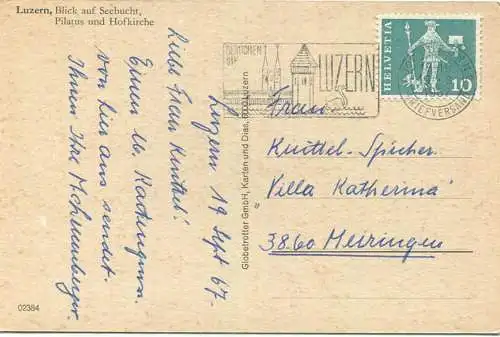 Luzern, Blick auf Seebucht,
Pilatus und Hofkirche
Luzern 19 Sept 67.
Liebe Frau Knittel!
Einen lb. Kartengruss
von hier aus sendet
Ihnen Ihr
02384
Globetrotter GmbH, Karten und Dias, 6000 Luzern
LUZERN
BRIEFVERSAND
HELVETIA
10
Frau
Knittel-Spicher
"Villa Katherina"
3860 Meiringen